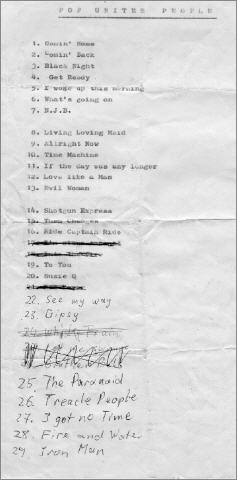 POP UNITES PEOPLE
1. Comin' Home
2. Comin' Back
3. Black Night
4. Get Ready
5. I woke up this morning
6. What's going on
7. N.J.B.
8. Living Loving Maid
9. Allright Now
10. Time Machine
11. If the day was any longer
12. Love like a Man
13. Evil Woman
14. Shotgun Express
15. Them Changes
16. Ride Captain Ride
17.
18.
19. To You
20. Susie Q
21.
22. See my way
23. Gipsy
24. Train
25. The Paranoid
26. Treacle People
27. I got no Time
28. Fire and Water
29. Iron Man